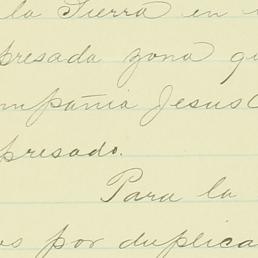 la Sierra en
presada zona qu
mpañia Jesus C
presado.
Para la
os por duplica